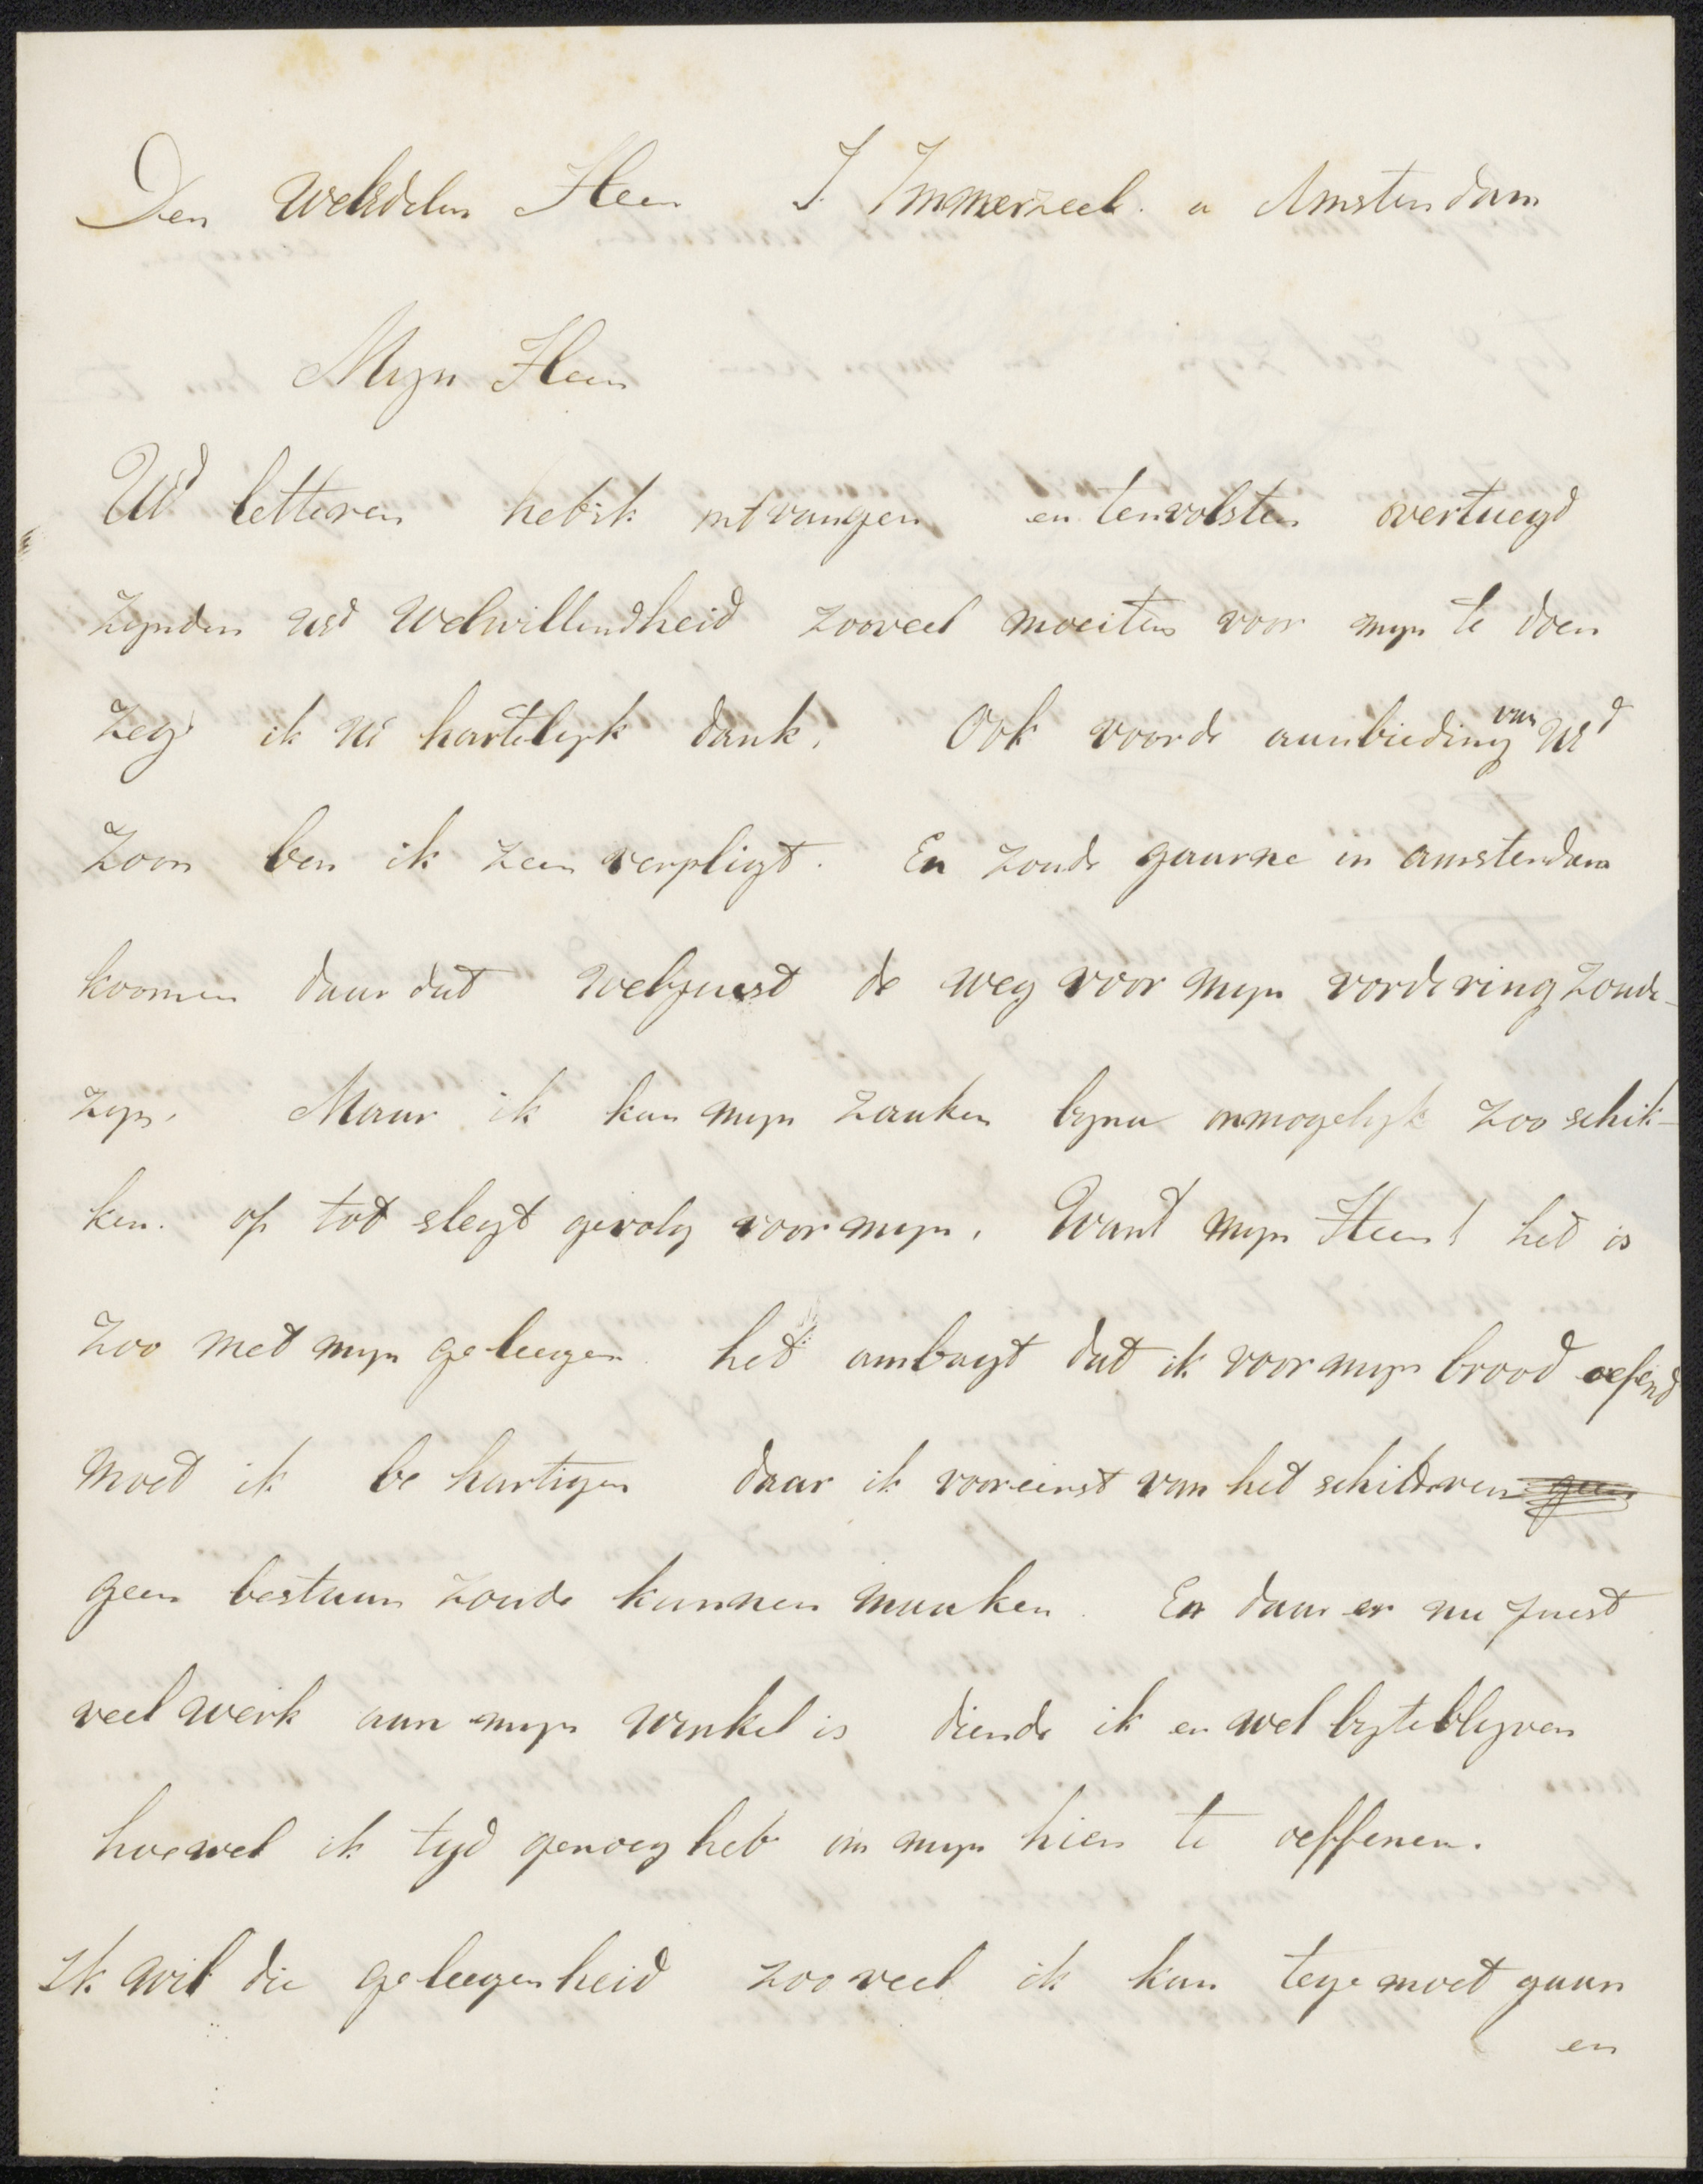 Den WelEdelen Heer J. Immerzeel. a Amsterdam
Myn Heer
UEd letteren heb ik ontvangen en tenvolsten overtuegd
zynden UEd Welwillendheid zooveel moeiten voor myn te doen
zeg ik UE hartelyk dank. Ook voorde aanbieding van UEd
zoon ben ik zeer verpligt. En zoude gaarne in amsterdam
koomen daar dat weljuist de weg voor myn vordering zoude
zyn. Maar ik kan myn zaaken byna onmogelyk zoo schik-
ken. of tot slegt gevolg voor myn. Want myn Heer! het is
zoo met myn geleegen. het ambagt dat ik voor myn brood oefend
moet ik be hartigen daar ik vooreerst van het schilderen geen
geen bestaan zoude kunnen maaken. En daar er nu juist
veel werk aan myn winkel is diende ik er wel byteblyven
hoewel ik tyd genoeg heb om myn hier te oeffenen.
Ik wil die geleegenheid zooveel ik kan tege moet gaan
en